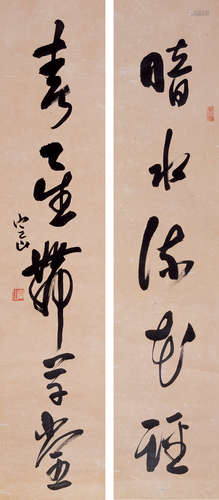 暗水流花徑
春星帶草堂